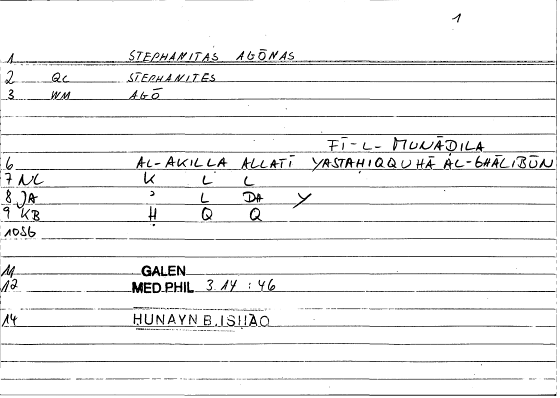 1
1 STEPHANITAS AGŌNAS
2 QC STEPHANITES
3 WM AGŌ
FĪ-L-MUNĀDILA
6 AL-AKILLA ALLATĪ YASTAHIQQUHĀ AL-GHĀLIBŪN
7 NL K L L
8 JA ɔ L DA Y
9 KB Ḥ Q Q
1056
11 GALEN
12 MED.PHIL 3.14 : 46
14 HUNAYN B.ISHAQ